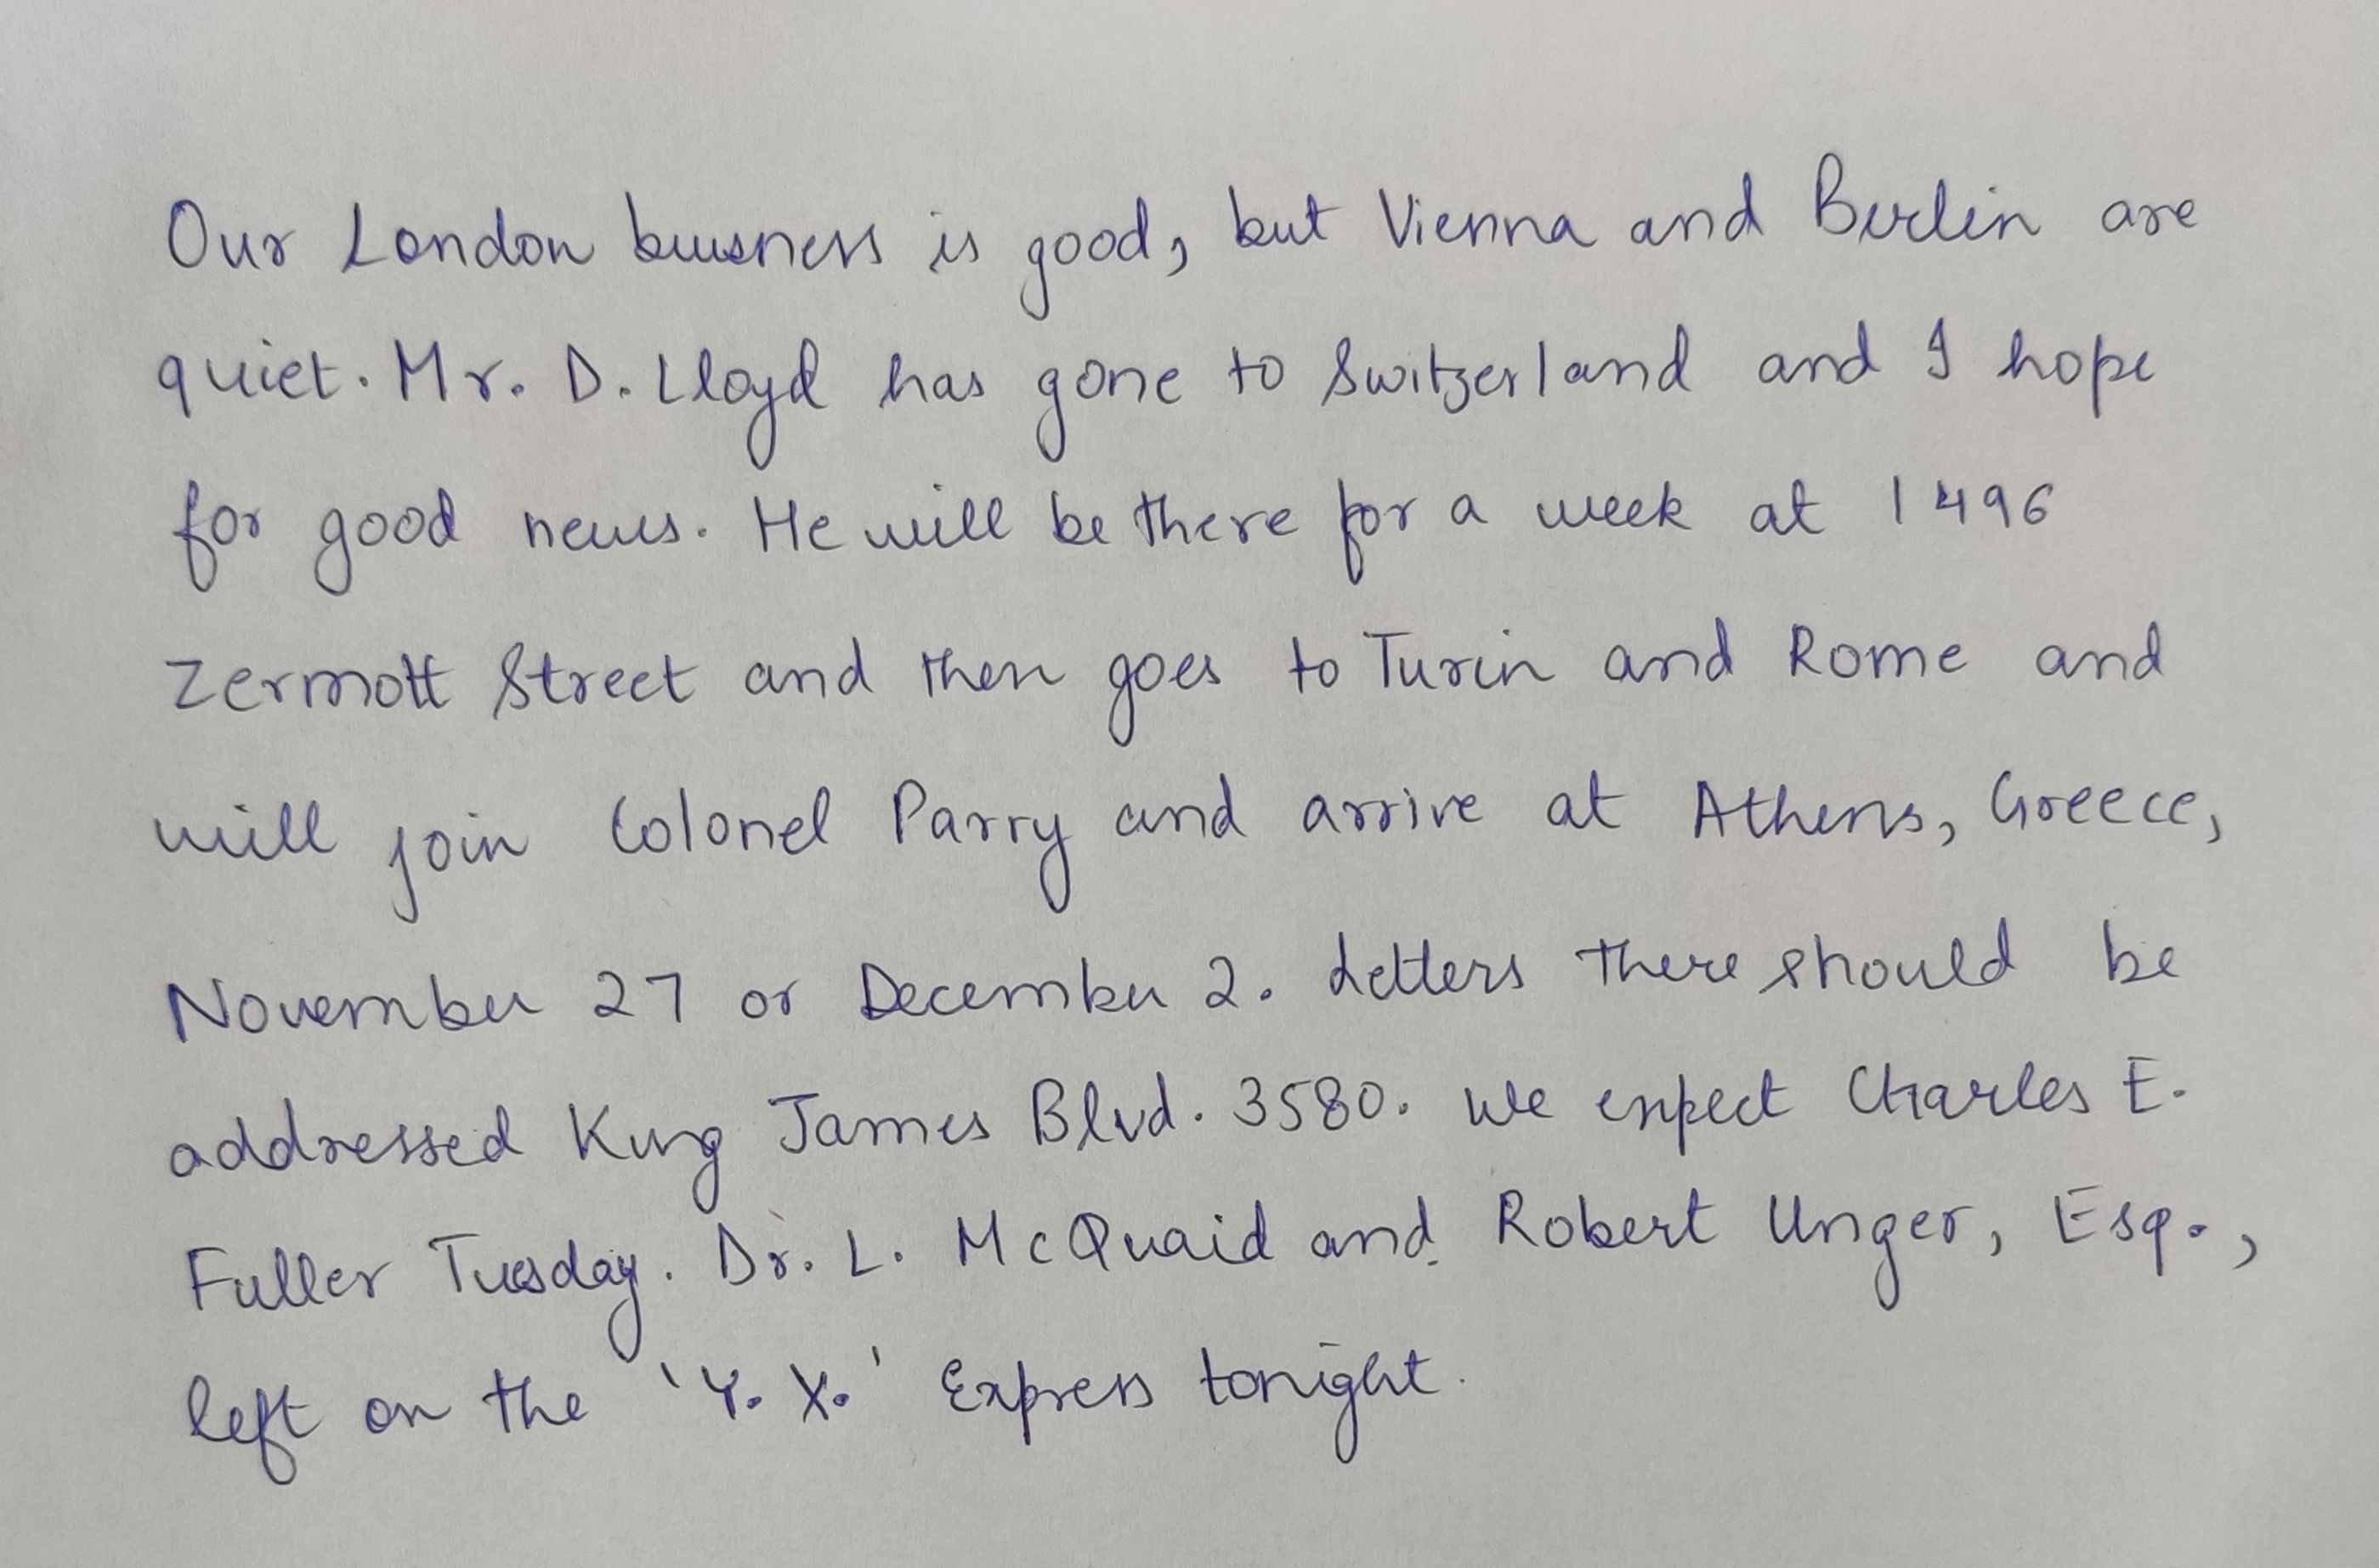 Our London buisness is good, but Vienna and Berlin are
quiet. Mr. D. Lloyd has gone to Switzerland and I hope
for good news. He will be there for a week at 1496
Zermott Street and then goes to Turin and Rome and
will join Colonel Parry and arrive at Athens, Greece,
November 27 or December 2. Letters there should be
addressed King James Blvd. 3580. We expect Charles E.
Fuller Tuesday. Dr. L. McQuaid and Robert Unger, Esq.,
left on the 'Y. X.' Express tonight.